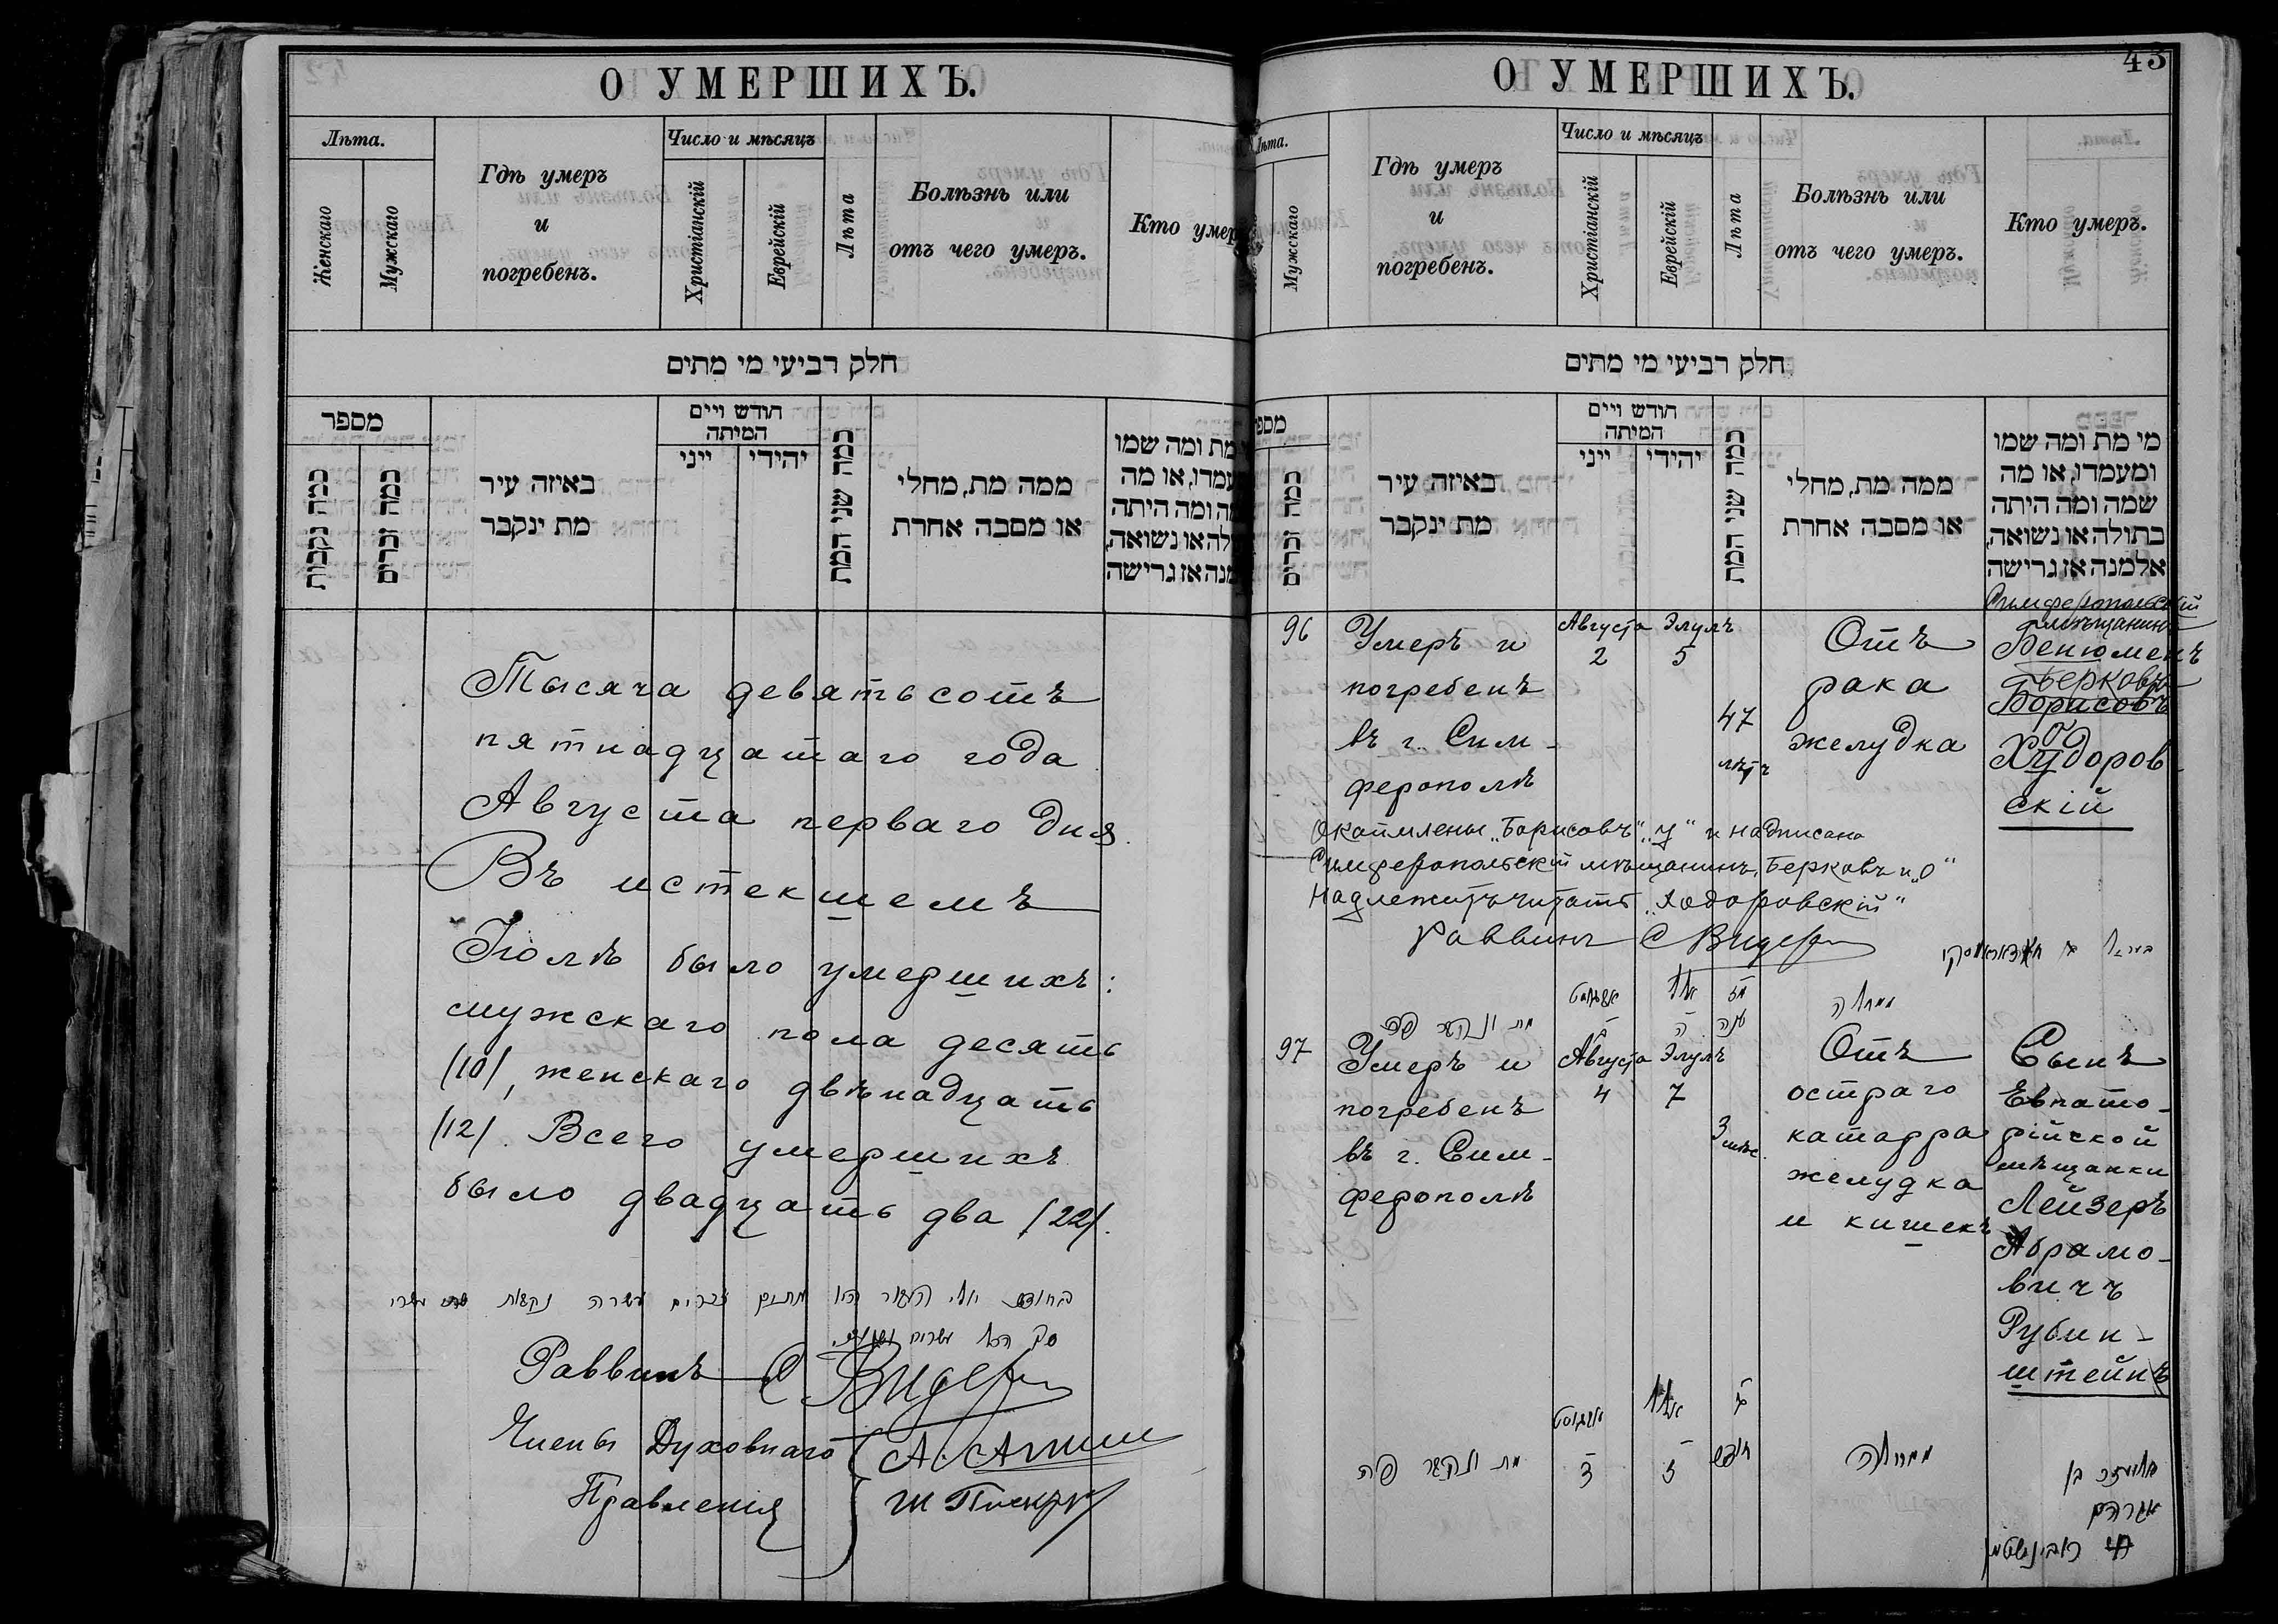 О УМЕРШИХЪ.
Лѣта.
Женскаго
Мужскаго
Гдѣ умеръ
и
погребенъ.
Число и мѣсяцъ
Христіанскій
Еврейскій
Лѣта
Болѣзнь или
отъ чего умеръ.
Кто умер
חלק רביעי מי מתים
מספר
כמה נקבות
כמה זכרים
באיזה עיר
מת ינקבר
חודש ויים
המיתה
ייני
יהידי
כמה שני המת
ממה מת, מחלי
או מסבה אחרת
מת ומה שמו
עמדו, או מה
ה ומה היתה
לה או נשואה,
מנה אז גרישה
Тысяча девятьсотъ
пятнадцатаго года
Августа перваго дня.
Въ истекшемъ
Іюлѣ было умершихъ:
мужскаго пола десять
/10/, женскаго двѣнадцать
/12/. Всего умершихъ
было двадцать два /22/.
Раввинъ С. Видер
Члены Духовнаго
Правленія
43
О УМЕРШИХЪ.
Лѣта.
Мужскаго
Гдѣ умеръ
и
погребенъ.
Число и мѣсяцъ
Христіанскій
Еврейскій
Лѣта
Болѣзнь или
отъ чего умеръ.
Кто умеръ.
חלק רביעי מי מתים
מספ
כמה זכרים
באיזה עיר
מת ינקבר
חודש ויים
המיתה
ייני
יהידי
כמה שני המת
ממה מת, מחלי
או מסבה אחרת
מי מת ומה שמו
ומעמדו, או מה
שמה ומה היתה
בתולה או נשואה,
אלמנה אז גרישה
96
Умеръ и
погребенъ
въ г. Сим-
ферополѣ
Августа
2
Элулъ
5
47
лѣтъ
Отъ
рака
желудка
Симферопольскій
мѣщанинъ
Бенюменъ
Берковъ
Борисовъ
о
Худоров-
скій
Окаймлены „Борисовъ" „у" и надписано
Симферопольскій мѣщанинъ, Берковъ и „о"
Надлежитъ читать „Ходоровскій"
Раввинъ С Видер
97
Умеръ и
погребенъ
въ г. Сим-
ферополѣ
Августа
4
Элулъ
7
3
мѣс.
Отъ
остраго
катарра
желудка
и кишекъ
Сынъ
Евпато-
рійской
мѣщанки
Лейзеръ
Абрамо-
вичъ
Рубин-
штейнъ
מת ונקבר פה
אברהם
רובינשטיין